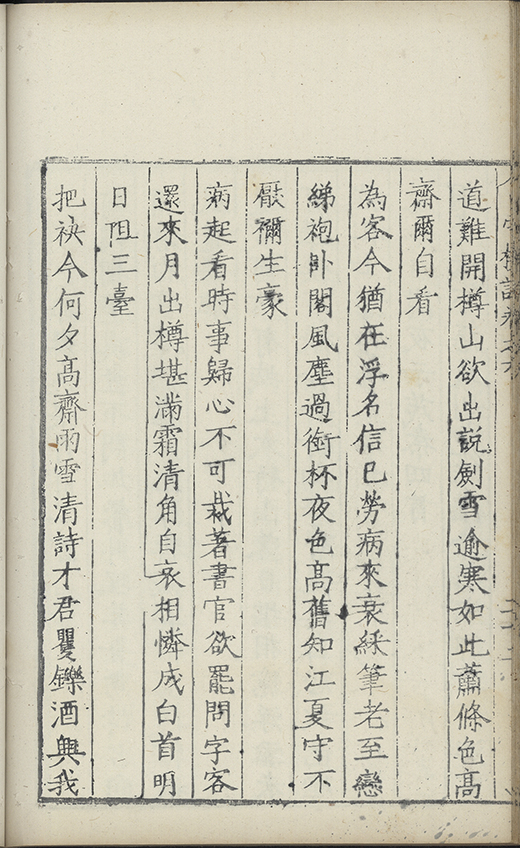 道難開樽山欲出說劍雪逾寒如此蕭條色高
齋爾自看
為客今猶在浮名信已勞病來衰綵筆老至戀
綈袍卧閣風塵過銜杯夜色高舊知江夏守不
厭禰生豪
病起看時事歸心不可裁著書官欲罷問字客
還來月出樽堪滿霜清角自哀相憐成白首明
日阻三臺
把袂今何夕高齋雨雪清詩才君矍鑠酒興我